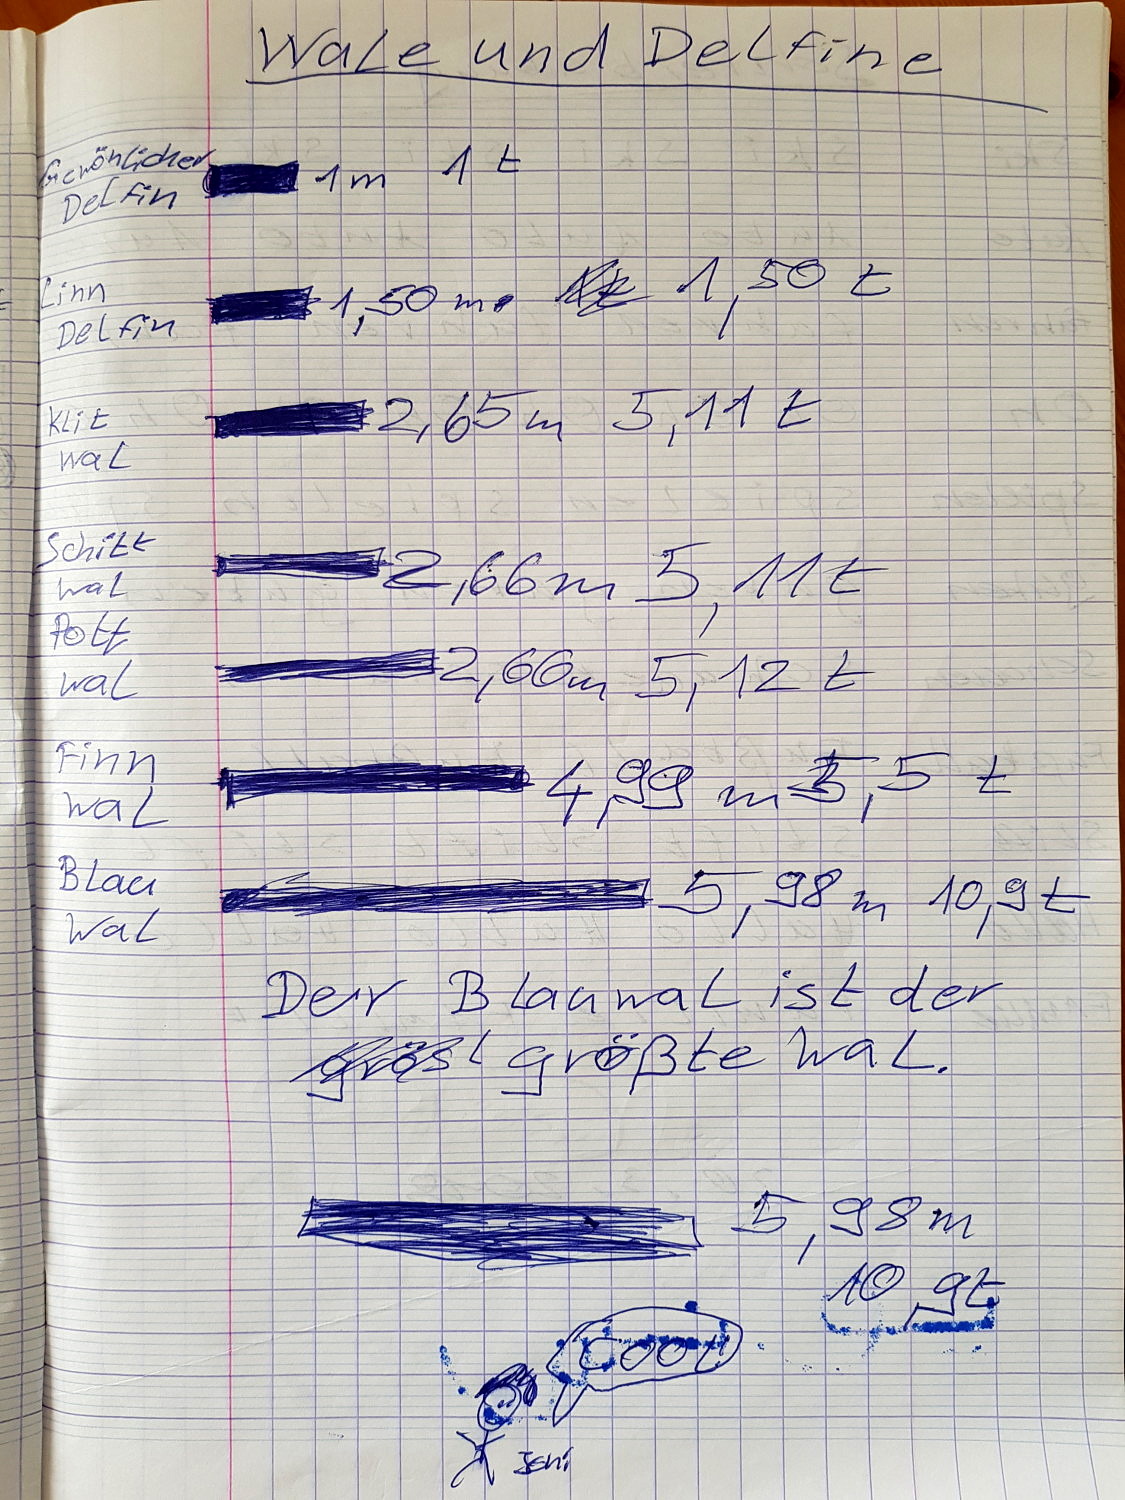 Wale und Delfine
Gewönlicher
Delfin 1m 1 t
Linn
Delfin 1,50 m. 1,50 t
Klit
wal 2,65m 5,11 t
Schitt
wal 2,66m 5,11t
Pott
wal 2,66m 5,12 t
Finn
wal 4,99 m 5,5 t
Blau
wal 5,98 m 10,9t
Der Blauwal ist der
größte Wal.
5,98m
10,9t
COOL